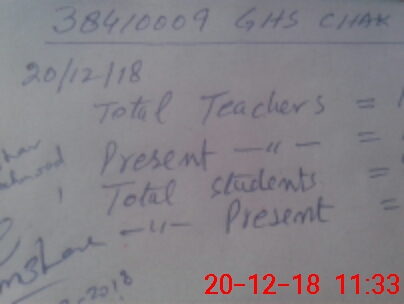 38410009 GHS CHAK
20/12/18
Total Teachers =
Present —"— =
Total students =
—"— Present =
2018
20-12-18 11:33